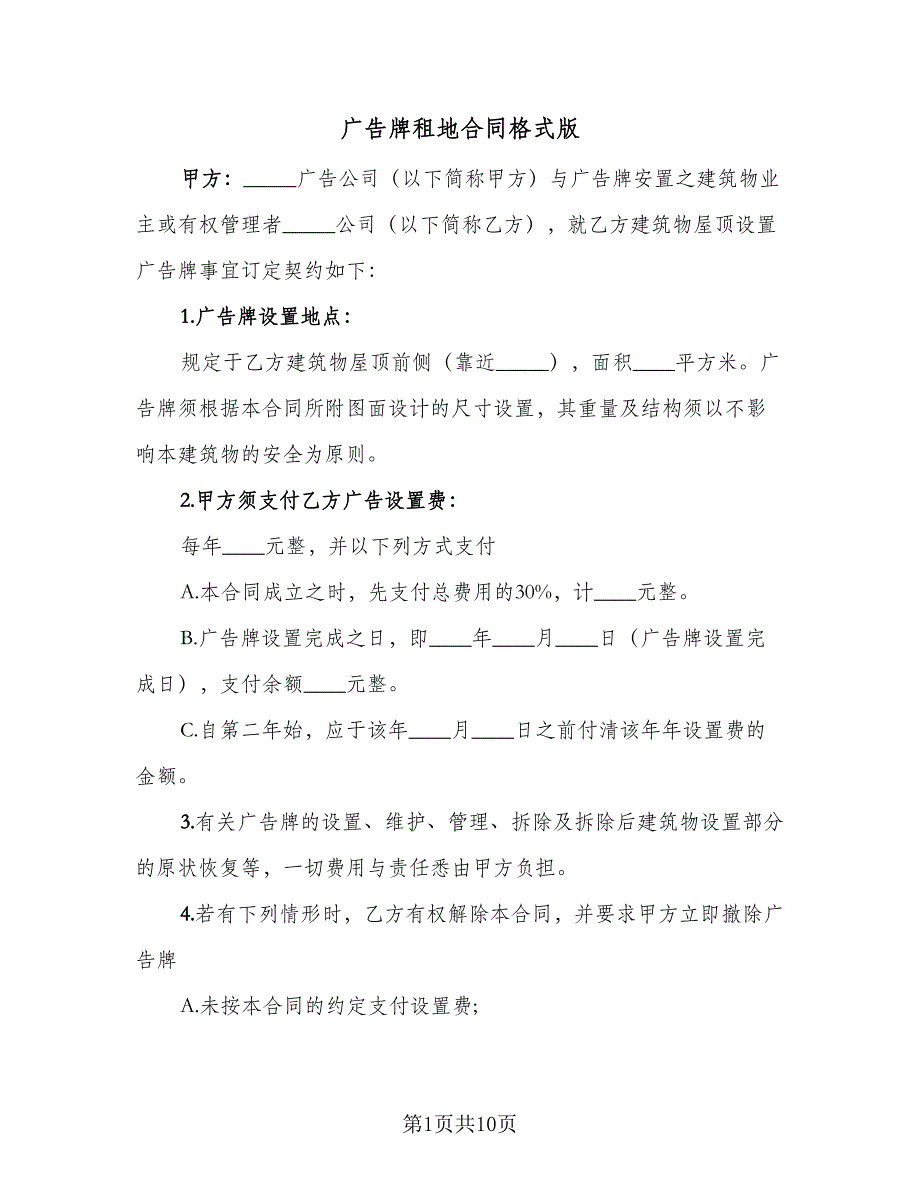 广告牌租地合同格式版
甲方：_____广告公司（以下简称甲方）与广告牌安置之建筑物业
主或有权管理者_____公司（以下简称乙方），就乙方建筑物屋顶设置
广告牌事宜订定契约如下：
1.广告牌设置地点：
规定于乙方建筑物屋顶前侧（靠近_____），面积____平方米。广
告牌须根据本合同所附图面设计的尺寸设置，其重量及结构须以不影
响本建筑物的安全为原则。
2.甲方须支付乙方广告设置费：
每年____元整，并以下列方式支付
A.本合同成立之时，先支付总费用的30%，计____元整。
B.广告牌设置完成之日，即____年____月____日（广告牌设置完
成日），支付余额____元整。
C.自第二年始，应于该年____月____日之前付清该年年设置费的
金额。
3.有关广告牌的设置、维护、管理、拆除及拆除后建筑物设置部分
的原状恢复等，一切费用与责任悉由甲方负担。
4.若有下列情形时，乙方有权解除本合同，并要求甲方立即撤除广
告牌
A.未按本合同的约定支付设置费;
第1页共10页